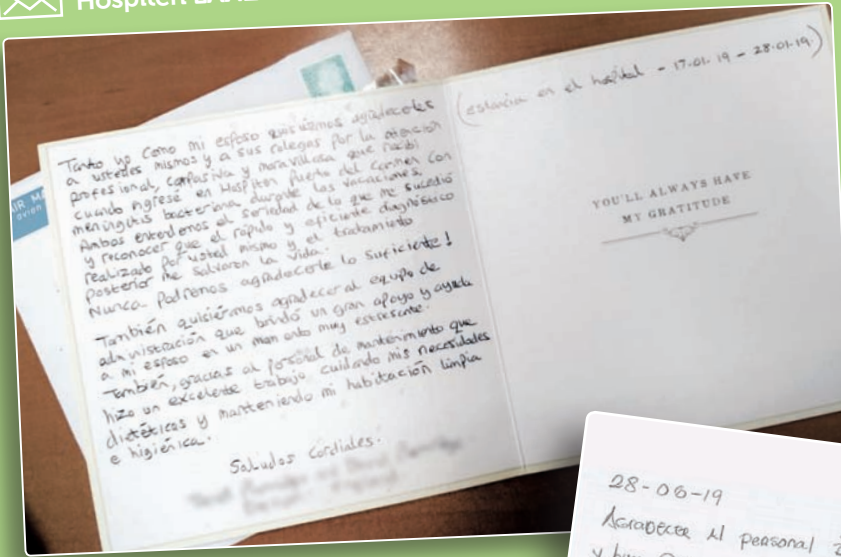 Hospiten
Tanto yo como mi esposo quisiéramos agradecerles
a ustedes mismos y a sus colegas por la atención
profesional, compasiva y maravillosa que recibí
cuando ingresé en Hospiten Puerto del Carmen con
meningitis bacteriana durante las vacaciones.
Ambos entendemos el seriedad de lo que me sucedió
y reconocer que el rápido y eficiente diagnóstico
realizado por usted mismo y el tratamiento
posterior me salvaron la vida.
Nunca podremos agradecerle lo suficiente!
También quisiéramos agradecer al equipo de
administración que brindó un gran apoyo y ayuda
a mi esposo en un momento muy estresante.
También, gracias al personal de mantenimiento que
hizo un excelente trabajo cuidando mis necesidades
dietéticas y manteniendo mi habitación limpia
e higiénica.
Saludos cordiales.
(estancia en el hospital - 17-01-19 - 28-01-19.)
YOU'LL ALWAYS HAVE
MY GRATITUDE
AIR MA
avion
28-06-19
Agradecer al personal
y